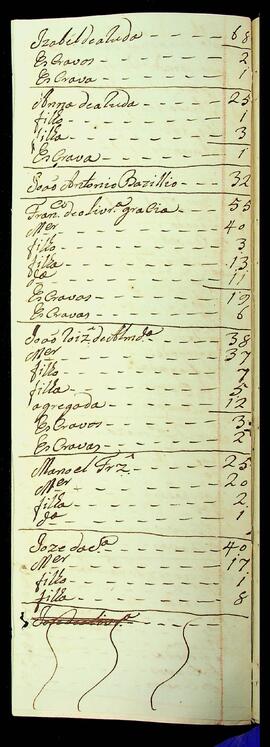 Izabel de aluda - - - 68
EsCravos - - - 2
EsCrava - - - 1
Anna de aluda - - - 25
fillo - - - 1
filla - - - 3
EsCrava - - - 1
João Antonio Bazillio - - - 32
Fran.co de olivr.a gracia - - - 55
Mer - - - 40
fillo - - - 3
filla - - - 13
da - - - 11
EsCravos - - - 19
EsCravas - - - 6
João de Almd.a - - - 38
Mer - - - 37
fillo - - - 7
filla - - - 5
agregada - - - 12
EsCravos - - - 3
EsCravas - - - 2
Manoel Frz.a - - - 25
Mer - - - 20
filla - - - 2
da - - - 1
Joze da - - - 40
Mer - - - 17
fillo - - - 1
filla - - - 8